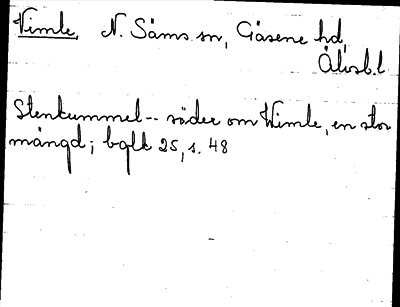 Vimle, N. Säms sn, Gäsene hd,
Älvsb.l
Stenkummel -- söder om Wimle, en stor
mängd; bglk 25, s. 48